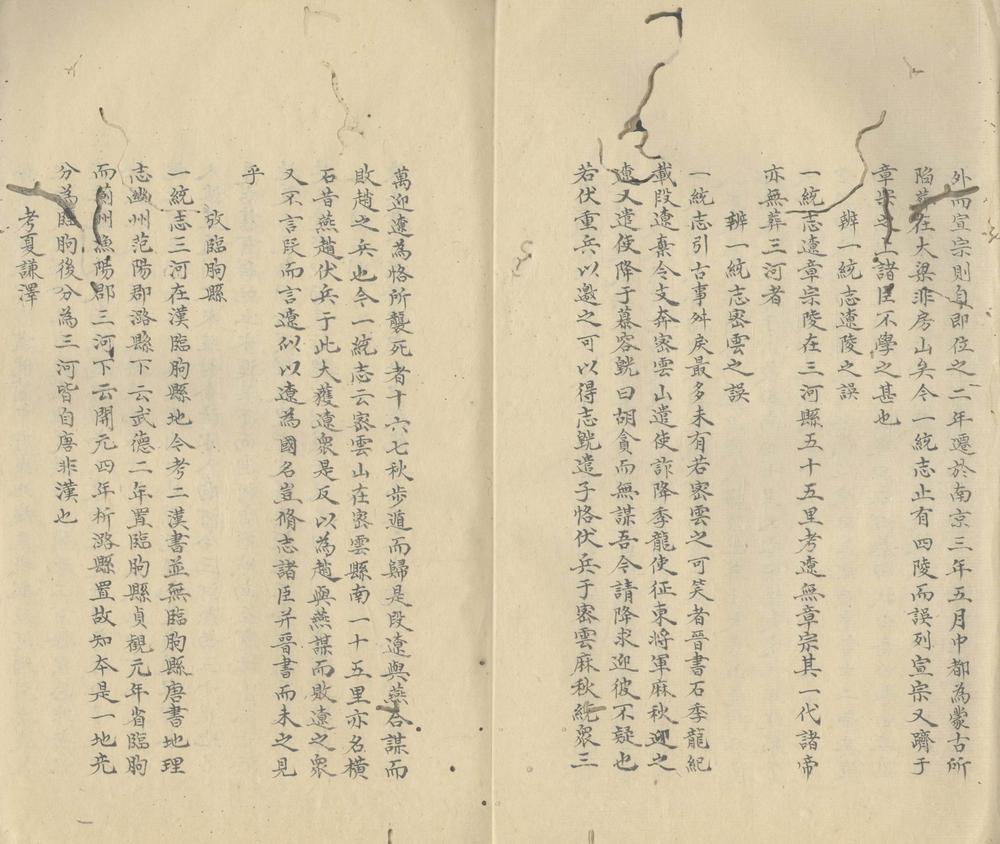 外而宣宗則自即位之二年遷於南京三年五月中都為蒙古所
陷葬在大梁非房山矣今一統志止有四陵而誤列宣宗又躋于
章宗之上諸臣不學之甚也
辨一統志遼陵之誤
一統志遼章宗陵在三河縣五十五里考遼無章宗其一代諸帝
亦無葬三河者
辨一統志密雲之誤
一統志引古事舛戾最多未有若密雲之可笑者晉書石季龍紀
載段遼棄令支奔密雲山遣使詐降季龍使征東將軍麻秋迎之
遼又遣使降于慕容皝曰胡貪而無謀吾今請降求迎彼不疑也
若伏重兵以邀之可以得志皝遣子恪伏兵于密雲麻秋統衆三
萬迎遼為恪所襲死者十六七秋步遁而歸是段遼與燕合謀而
敗趙之兵也今一統志云密雲山在密雲縣南一十五里亦名橫
石昔燕趙伏兵于此大獲遼衆是反以為趙與燕謀而敗遼之衆
又不言段而言遼似以遼為國名豈脩志諸臣并晉書而未之見
乎
攷臨朐縣
一統志三河在漢臨朐縣地今考二漢書並無臨朐縣唐書地理
志幽州范陽郡潞縣下云武德二年置臨朐縣貞觀元年省臨朐
而薊州漁陽郡三河下云開元四年析潞縣置故知本是一地先
分為臨朐後分為三河皆自唐非漢也
考夏謙澤